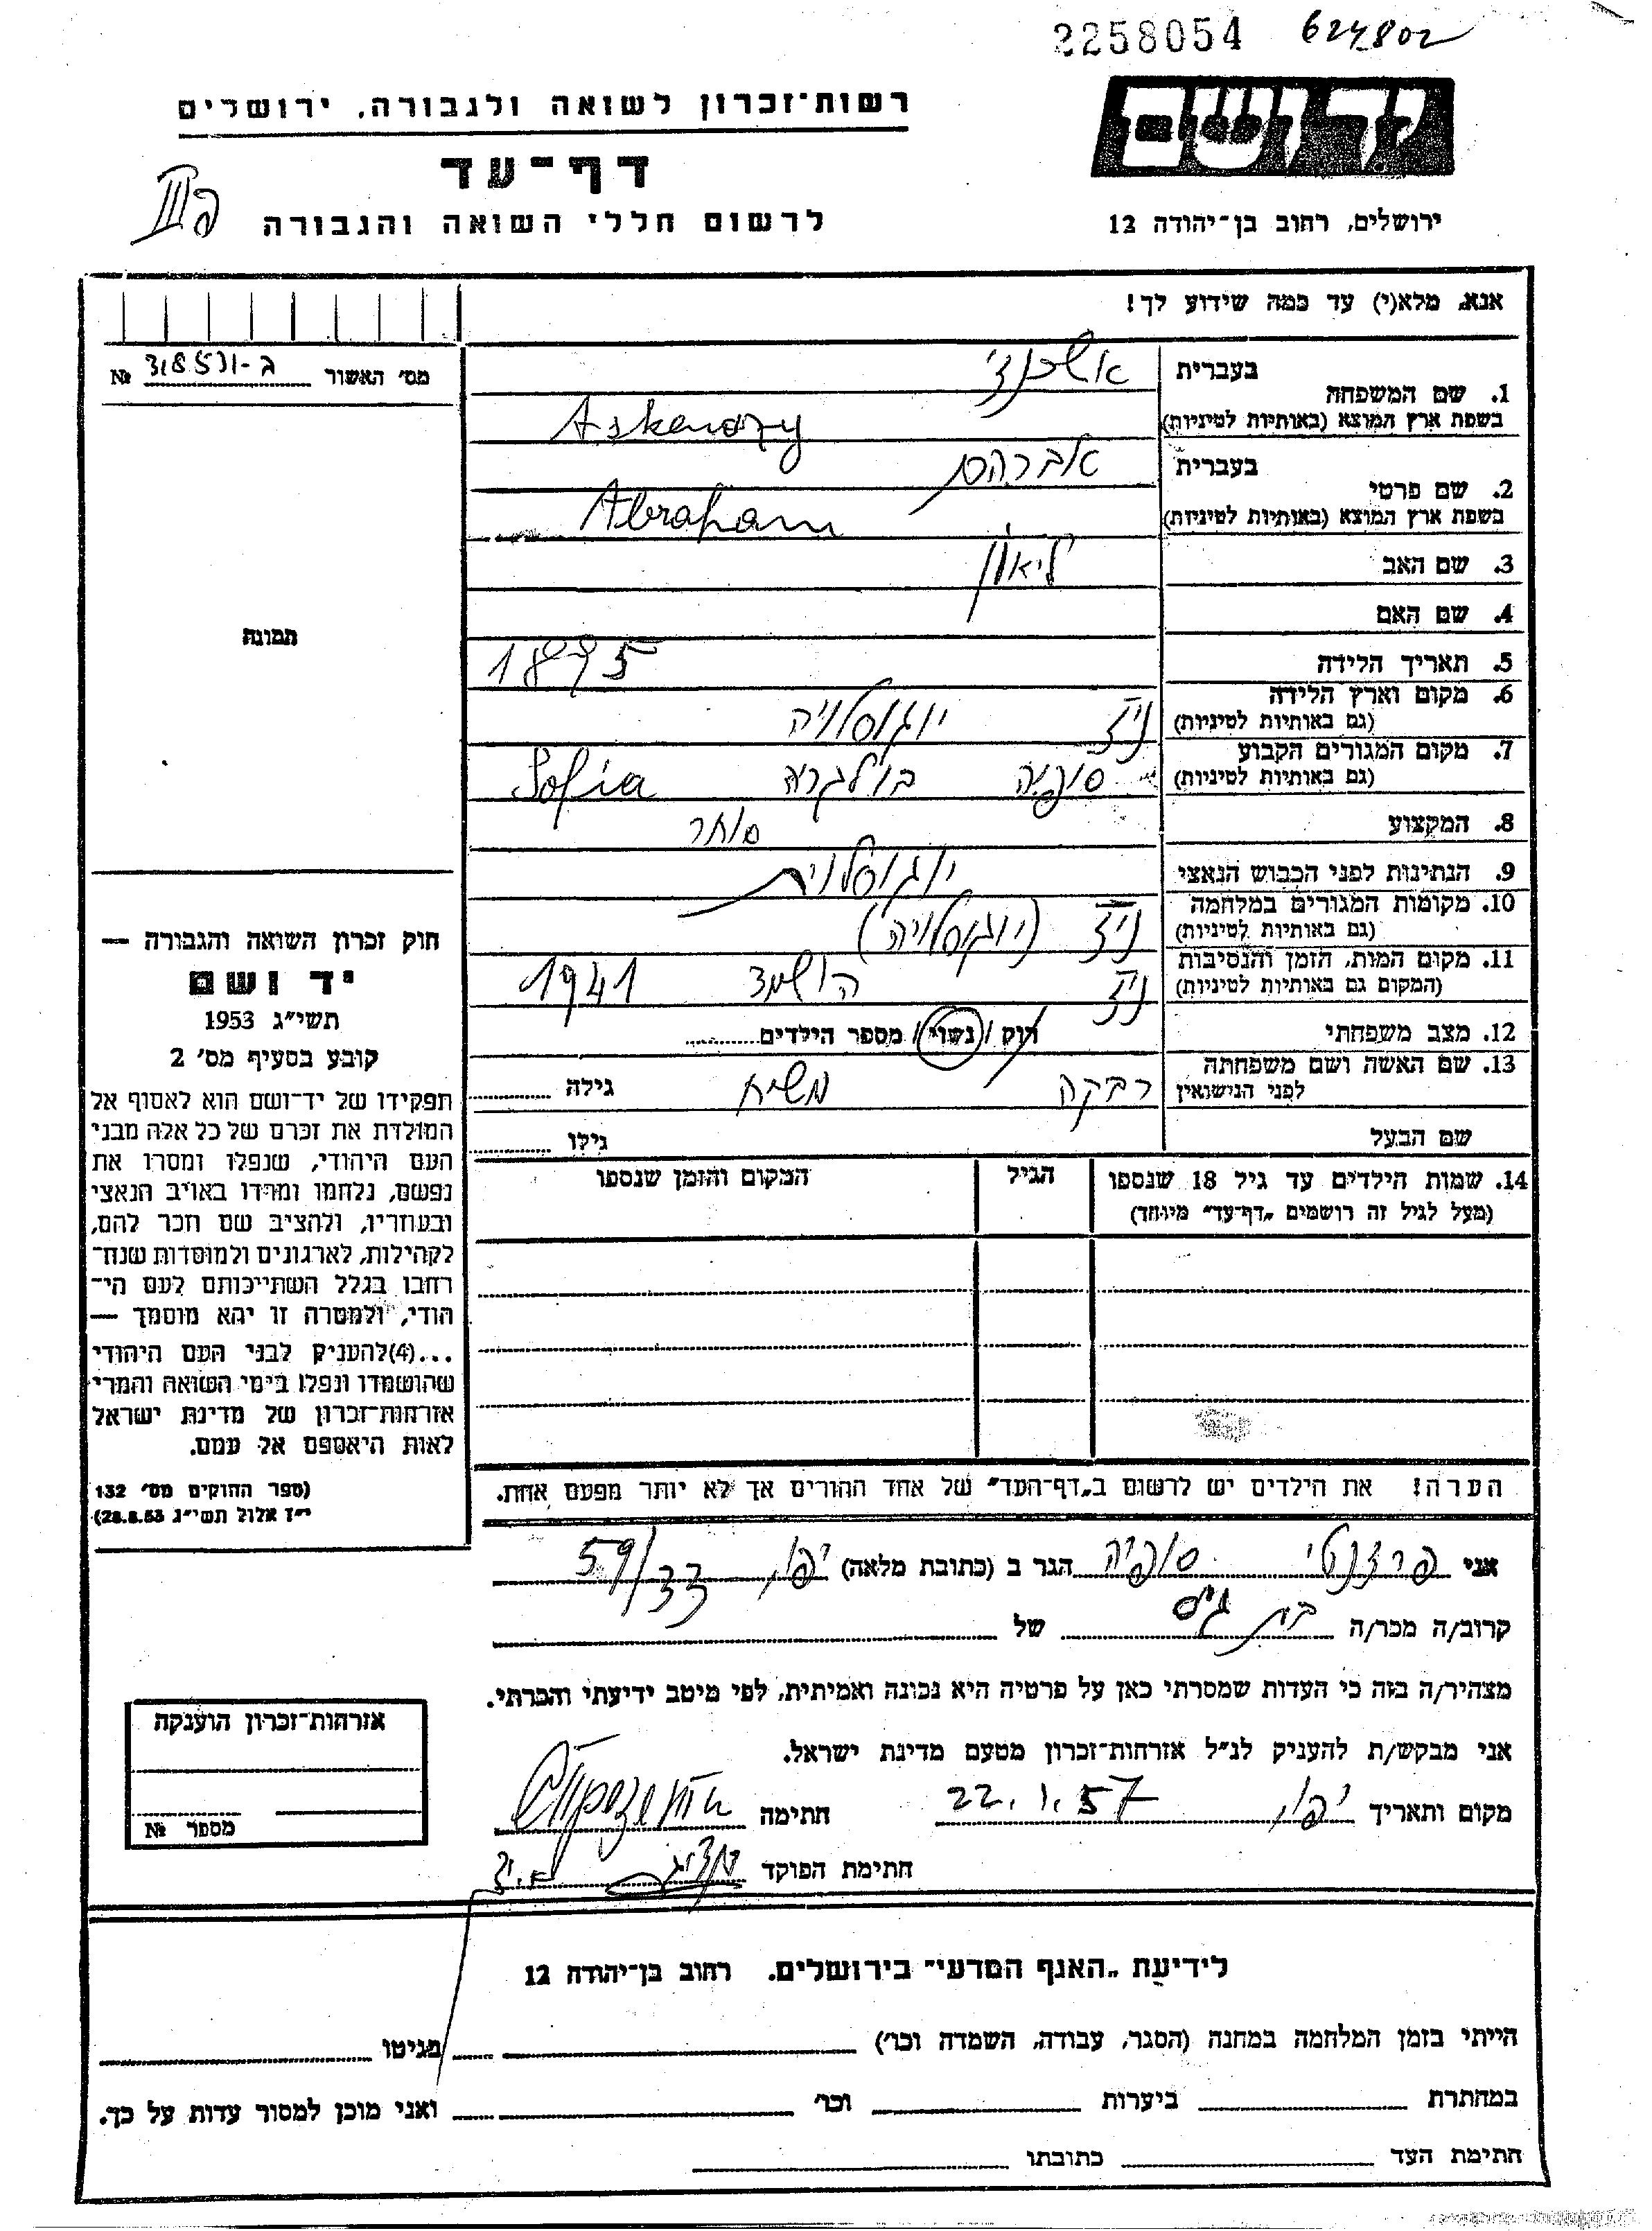 2258054 624802
יד ושם
רשות־זכרון לשואה ולגבורה, ירושלים
דף־עד
לרשום חללי השואה והגבורה
ירושלים, רחוב בן־יהודה 12
אנא, מלא(י) עד כמה שידוע לך!
מס׳ האשור №
1. שם המשפחה
בעברית אשכנזי
בשפת ארץ המוצא (באותיות לטיניות) Askenazy
2. שם פרטי
בעברית אברהם
בשפת ארץ המוצא (באותיות לטיניות) Abraham
3. שם האב ליאון
4. שם האם
5. תאריך הלידה 1895
6. מקום וארץ הלידה
(גם באותיות לטיניות) ניצ יוגוסלויה
7. מקום המגורים הקבוע
(גם באותיות לטיניות) סופיה בולגריה Sofia
8. המקצוע סוחר
9. הנתינות לפני הכבוש הנאצי יוגוסלוית
10. מקומות המגורים במלחמה
(גם באותיות לטיניות) ניצ (יוגוסלויה)
11. מקום המות, הזמן והנסיבות
(המקום גם באותיות לטיניות) ניצ הושמד 1941
12. מצב משפחתי רוק / נשוי / מספר הילדים
13. שם האשה ושם משפחתה
לפני הנישואין רבקה משיח גילה
שם הבעל גילו
14. שמות הילדים עד גיל 18 שנספו
(מעל לגיל זה רושמים „דף־עד״ מיוחד)
הגיל
המקום והזמן שנספו
הערה! את הילדים יש לרשום ב„דף־העד״ של אחד ההורים אך לא יותר מפעם אחת.
תמונה
חוק זכרון השואה והגבורה —
יד ושם
תשי״ג 1953
קובע בסעיף מס׳ 2
תפקידו של יד־ושם הוא לאסוף אל
המולדת את זכרם של כל אלה מבני
העם היהודי, שנפלו ומסרו את
נפשם, נלחמו ומרדו באויב הנאצי
ובעוזריו, ולהציב שם וזכר להם,
לקהילות, לארגונים ולמוסדות שנח־
רחבו בגלל השתייכותם לעם הי־
הודי, ולמטרה זו יהא מוסמך —
...(4)להעניק לבני העם היהודי
שהושמדו ונפלו בימי השואה והמרי
אזרחות־זכרון של מדינת ישראל
לאות היאספם אל עמם.
(ספר החוקים מס׳ 132
י״ז אלול תשי״ג 28.8.53)
אני פרזנטי סופיה הגר ב (כתובת מלאה) יפו, 59/33
קרוב/ה מכר/ה בת גיס של
מצהיר/ה בזה כי העדות שמסרתי כאן על פרטיה היא נכונה ואמיתית, לפי מיטב ידיעתי והכרתי.
אני מבקש/ת להעניק לנ״ל אזרחות־זכרון מטעם מדינת ישראל.
מקום ותאריך יפו, 22.1.57 חתימה
חתימת הפוקד
אזרחות־זכרון הוענקה
מספר №
לידיעת „האגף המדעי״ בירושלים. רחוב בן־יהודה 12
הייתי בזמן המלחמה במחנה (הסגר, עבודה, השמדה וכו׳) בגיטו
במחתרת ביערות וכו׳ ואני מוכן למסור עדות על כך.
חתימת העד כתובתו